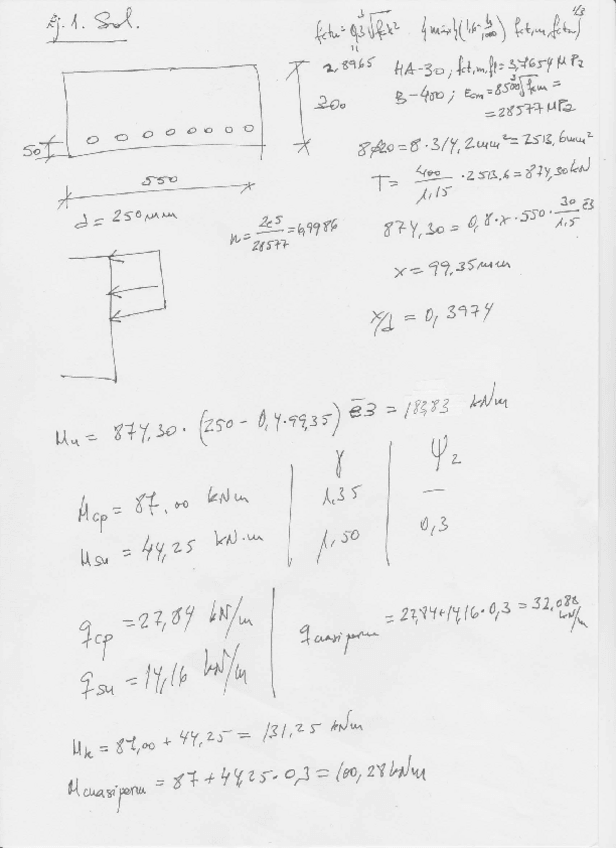 Ej. 1. Sol.
1/3
fctm = 0,3 ∛fck² {máx{(1,6 - h/1000) fct,m, fctm}
2,8965
HA-30; fct,m,fl = 3,7654 MPa
B-400; Ecm = 8500 ∛fcm =
= 28577 MPa
300
50
550
d = 250 mm
8ϕ20 = 8·314,2 mm² = 2513,6 mm²
T = 400/1,15 · 2513,6 = 874,30 kN
n = 2e5/28577 = 6,9986
874,30 = 0,8·x·550·30/1,5 e-3
x = 99,35 mm
x/d = 0,3974
Mu = 874,30 · (250 - 0,4·99,35) e-3 = 183,83 kNm
γ ψ2
Mcp = 87,00 kNm 1,35 —
Msu = 44,25 kN·m 1,50 0,3
qcp = 27,84 kN/m
qcuasiperm = 27,84+14,16·0,3 = 32,088 kN/m
qsu = 14,16 kN/m
Mk = 87,00 + 44,25 = 131,25 kNm
Mcuasiperm = 87 + 44,25·0,3 = 100,28 kNm